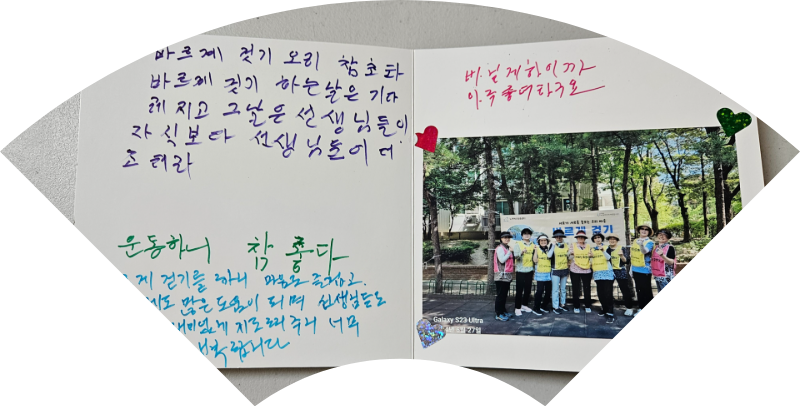 바르게 걷기 오리 참 초타
바르게 걷기 하는날은 기다
려 지고 그날은 선생님들이
자식보다 선생님들이 더
조터라
운동하니 참 좋다
걷기를 하니 마음도 즐겁고.
많은 도움이 되며 선생님들도
재미있게 지도해 주어 너무
행복합니다
바닐게하이까
아주좋여라구요
바르게 걷기
Galaxy S23 Ultra